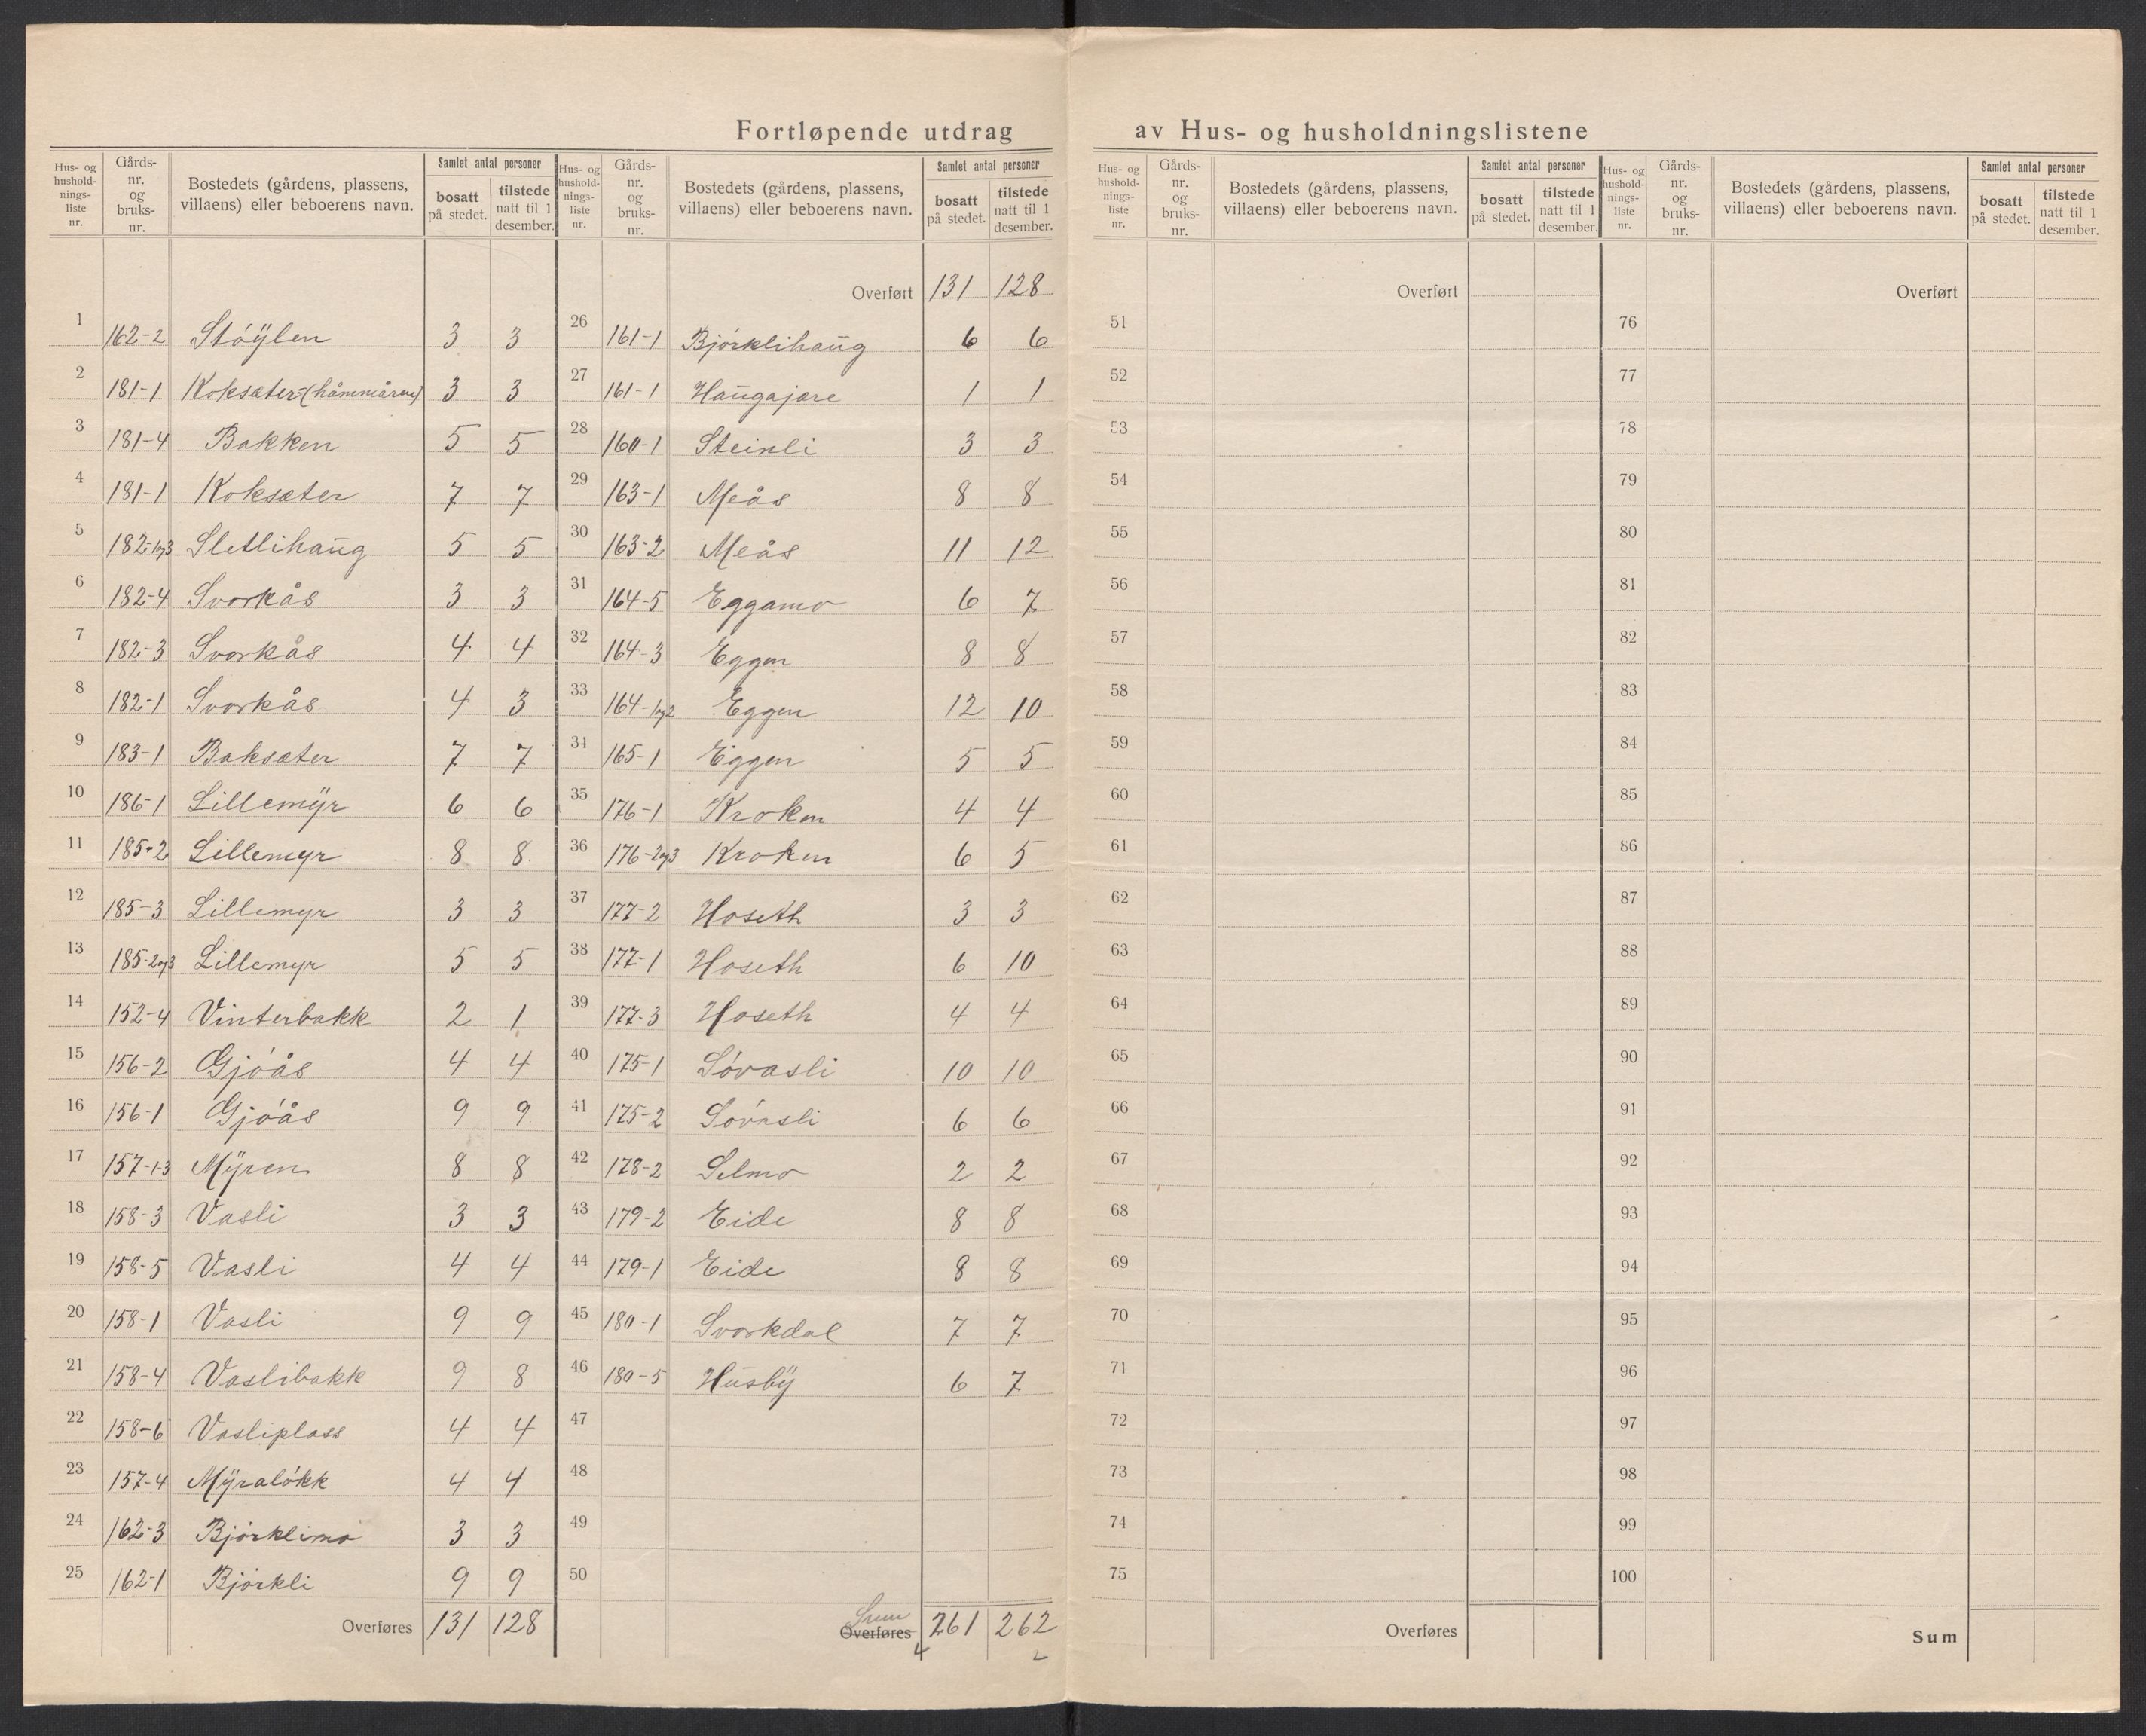 Fortløpende utdrag av Hus- og husholdningslistene
Hus- og hushold-nings-liste nr. | Gårds-nr. og bruks-nr. | Bostedets (gårdens, plassens, villaens) eller beboerens navn. | Samlet antal personer | bosatt på stedet. | tilstede natt til 1 desember.
1 162-2 Stóÿlen 3 3
2 181-1 Koksæter-(håmmåren) 3 3
3 181-4 Bakken 5 5
4 181-1 Koksæter 7 7
5 182-1og3 Sletlihaug 5 5
6 182-4 Svorkås 3 3
7 182-3 Svorkås 4 4
8 182-1 Svorkås 4 3
9 183-1 Baksæter 7 7
10 186-1 Lillemÿr 6 6
11 185-2 Lillemyr 8 8
12 185-3 Lillemyr 3 3
13 185-2og3 Lillemyr 5 5
14 152-4 Vinterbakk 2 1
15 156-2 Gjóås 4 4
16 156-1 Gjóås 9 9
17 157-1-3 Mÿren 8 8
18 158-3 Vasli 3 3
19 158-5 Vasli 4 4
20 158-1 Vasli 9 9
21 158-4 Vaslibakk 9 8
22 158-6 Vasliplass 4 4
23 157-4 Mÿralókk 4 4
24 162-3 Bjórklimo 3 3
25 162-1 Bjórkli 9 9
Overføres 131 128
Hus- og hushold-nings-liste nr. | Gårds-nr. og bruks-nr. | Bostedets (gårdens, plassens, villaens) eller beboerens navn. | Samlet antal personer | bosatt på stedet. | tilstede natt til 1 desember.
Overført 131 128
26 161-1 Bjórklihaug 6 6
27 161-1 Haugajære 1 1
28 160-1 Steinli 3 3
29 163-1 Meås 8 8
30 163-2 Meås 11 12
31 164-5 Eggamo 6 7
32 164-3 Eggen 8 8
33 164-1og2 Eggen 12 10
34 165-1 Eggen 5 5
35 176-1 Kroken 4 4
36 176-2og3 Kroken 6 5
37 177-2 Hoseth 3 3
38 177-1 Hoseth 6 10
39 177-3 Hoseth 4 4
40 175-1 Sóvasli 10 10
41 175-2 Sóvasli 6 6
42 178-2 Selmo 2 2
43 179-2 Eide 8 8
44 179-1 Eide 8 8
45 180-1 Svorkdal 7 7
46 180-5 Husbÿ 6 7
47
48
49
50
Sum
Overføres 261 262
4 2
Hus- og hushold-nings-liste nr. | Gårds-nr. og bruks-nr. | Bostedets (gårdens, plassens, villaens) eller beboerens navn. | Samlet antal personer | bosatt på stedet. | tilstede natt til 1 desember.
Overført
51
52
53
54
55
56
57
58
59
60
61
62
63
64
65
66
67
68
69
70
71
72
73
74
75
Overføres
Hus- og hushold-nings-liste nr. | Gårds-nr. og bruks-nr. | Bostedets (gårdens, plassens, villaens) eller beboerens navn. | Samlet antal personer | bosatt på stedet. | tilstede natt til 1 desember.
Overført
76
77
78
79
80
81
82
83
84
85
86
87
88
89
90
91
92
93
94
95
96
97
98
99
100
Sum